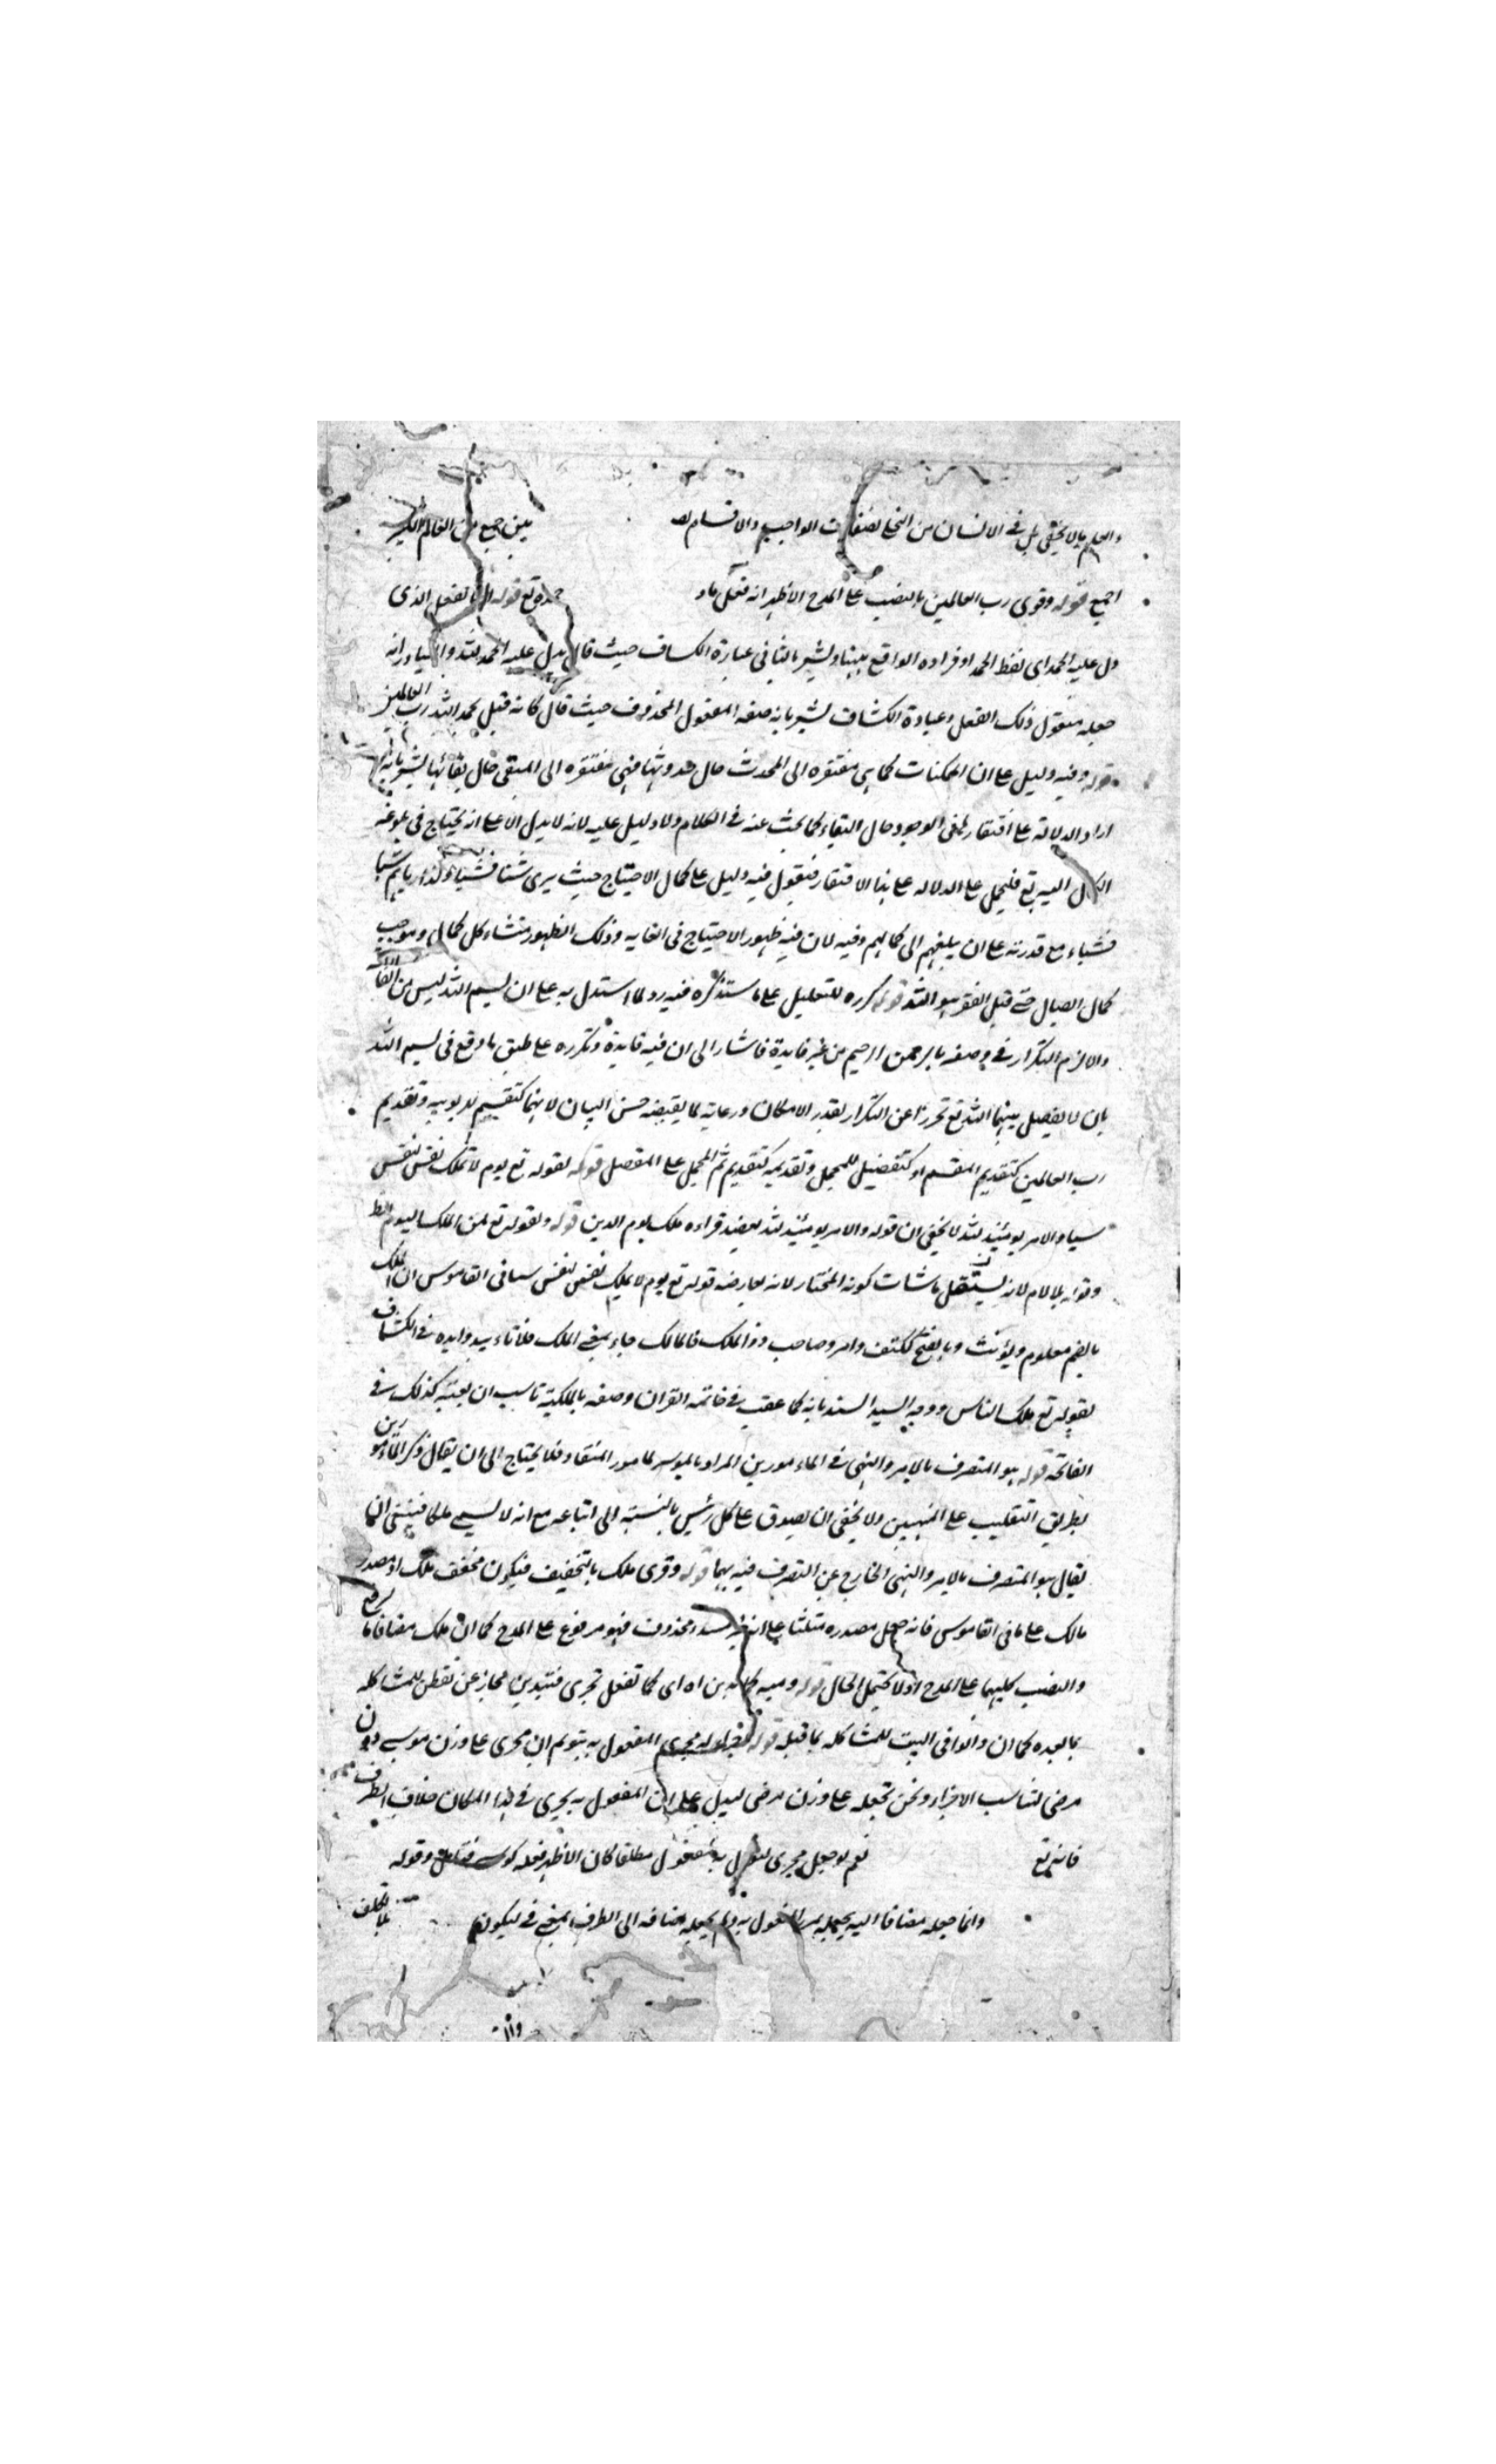 والعلم بما لا يخفى بل في الانسان من التخلي لصفات الواجب والاقسام لصـ يبقى جميع من العالم الكبير
اجمع قوله وقرى رب العالمين بالنصب على المدح الاظهر انه فعل ماد حمده تع قوله او بالفعل الذى
دل عليه الحمد اى لفظ الحمد او فراده الواقع بيننا ويشير بالثانى عبارة الكساف حيث قال بدل عليه الحمد لله والمتبادر انه
جعله مفعول ذلك الفعل وعبادة الكشاف يشير بانه صفه المفعول المحذوف حيث قال كانه قيل نحمد الله رب العالمين
قوله وفيه دليل على ان الممكنات كما هى مفتقره الى المحدث حال حدوثها فهى مفتقره الى المبقى حال بقائها يشير بانه
اراد الدلالة على افتقار لمبقى الوجود حال البقاء كما بحث عنه في الكلام ولا دليل عليه لانه لا يدل الا على انه يحتاج فى بلوغه
الكل اليه تع فليحمل على الدلاله على هذا الافتقار فنقول فيه دليل على كمال الاحتياج حيث يرى شئا فشياء ولذا رباهم شيا
فشياء مع قدرته على ان يبلغهم الى كمالهم وفيه لان فيه ظهور الاحتياج فى الغايه وذلك الظهور منشاء كل كمال وموجب
كمال الصال حتى قيل الفقر هو الله قوله كرره للتعليل على ما ستذكره فيه رد لما استدل به على ان بسم الله ليس من الفاتحة
والا لزم التكرار في وصفه بالرحمن الرحيم من غير فايدة فاشار الى ان فيه فايدة وتكرره على طبق ما وقع فى بسم الله
بان لا يفصل بينهما الله تع تحرزا عن التكرار بقدر الامكان ورعاية لما يقتضيه حسن البيان لانهما كتقسيم لربوبيه وتقديم
رب العالمين كتقديم المقسم او كتفضيل للمجمل وتقديمه كتقديم ثم المجمل على المفصل قوله لقوله تع يوم لا تملك نفس لنفس
سيا والامر يومئيذ لله لا يخفى ان قوله والامر يومئيذ لله يعضد قراءه ملك يوم الدين قوله ولقوله تع لمن الملك اليوم
وقوله بلا لام لانه يستقل باثبات كونه المختار لانه يعارضه قوله تع يوم لا يملك نفس لنفس سيا فى القاموس ان الملك
بالضم معلوم ويؤنث وبالفتح ككتف وامر وصاحب ذو الملك فالمالك جاء بمعنى الملك فلا تاءييد وايده في الكشاف
بقوله تع ملك الناس ووجه السيد السند بانه كما عقب في خاتمه القران وصفه بالملكية ناسب ان يعقبه كذلك في
الفاتحة قوله هو المتصرف بالامر والنهى في الماءمورين المراد بالموسر لمامور المنقاد فلا يحتاج الى ان يقال ذكر الماءمورين
بطريق التغليب على المنهيين ولا يخفى ان يصدق على كل رئيس بالنسبة الى اتباعه مع انه لا يسمى ملكا فينبغى ان
يقال هو المتصرف بالامر والنهى الخارج عن التصرف فيه بهما قوله وقرى ملك بالتخفيف فيكون مخفف ملك او مصدر
مالك على ما فى القاموس فانه جعل مصدره مثلثا على انه محذوف فهو مرفوع على المدح كما ان ملك مضافا ما رفع
والنصب كليهما على المدح اولا يحتمل الحال قوله ومنه كما تدين اه اى كما تفعل تجزى فتديدين مجاز عن تفطن للمشاكله
بما بعده كما ان دانوا فى البيت للمشاكله بما قبله قوله مجرى المفعول به يتوهم ان مجرى على وزن موسى دون
مرضى لتناسب الاجزاء ونحن نجعله على وزن مرضى ليدل على ان المفعول به يجرى في هذا المكان خلاف الظرف
فانه تع نعم لو جعل مجرى مفعول مطلقا كان الاظهر فعله وقوله
وانما جعله مضافا اليه المفعول به ولم يجعله مضافه الى الظرف بمعنى في ليكون بلا تكلف